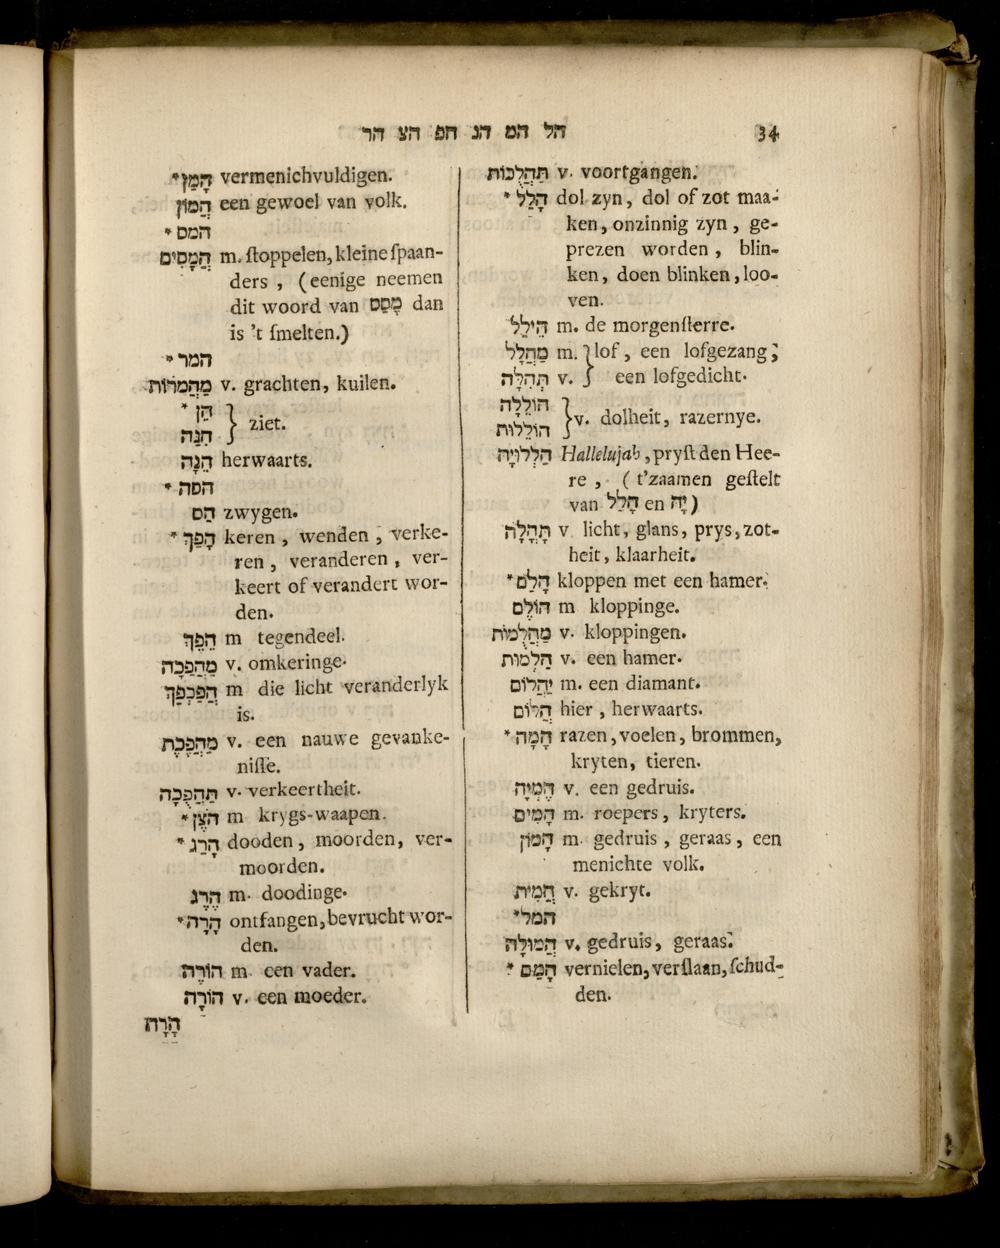 הל המ הנ הפ הצ הר 34
תַּהֲלֻכוֹת v. voortgangen.
* הָלַל dol zyn, dol of zot maa-
ken, onzinnig zyn, ge-
prezen worden, blin-
ken, doen blinken, loo-
ven.
הֵילֵל m. de morgenſterre.
מַהֲלָל m. } lof, een lofgezang;
תְּהִלָּה v. } een lofgedicht.
הוֹלֵלָה
הוֹלֵלוּת } v. dolheit, razernye.
הַלְלוּיָהּ Hallelujah, pryſt den Hee-
re, (t'zaamen geſtelt
van הָלַל en יָהּ)
תָּהֳלָה v. licht, glans, prys, zot-
heit, klaarheit.
* הָלַם kloppen met een hamer.
הוֹלֶם m kloppinge.
מַהֲלֻמוֹת v. kloppingen.
הַלְמוּת v. een hamer.
יַהֲלוֹם m. een diamant.
הֲלוֹם hier, herwaarts.
* הָמָה razen, voelen, brommen,
kryten, tieren.
הֶמְיָה v. een gedruis.
הָמִים m. roepers, kryters.
הָמוֹן m. gedruis, geraas, een
menichte volk.
הֲמִית v. gekryt.
* המל
הֲמוּלָה v. gedruis, geraas.
* הָמַם vernielen, verſlaan, ſchud-
den.
* הָמַן vermenichvuldigen.
הֲמוֹן een gewoel van volk.
* המס
הֲמָסִים m. ſtoppelen, kleine ſpaan-
ders, (eenige neemen
dit woord van מָסַס dan
is 't ſmelten.)
* המר
מַהֲמֹרוֹת v. grachten, kuilen.
* הֵן
הִנֵּה } ziet.
הֵנָּה herwaarts.
* הסה
הַס zwygen.
* הָפַךְ keren, wenden, verke-
ren, veranderen, ver-
keert of verandert wor-
den.
הֵפֶךְ m tegendeel.
מַהְפֵּכָה v. omkeringe.
הֲפַכְפַּךְ m die licht veranderlyk
is.
מַהְפֶּכֶת v. een nauwe gevanke-
niſſe.
תַּהְפֻּכָה v. verkeertheit.
* הֹצֶן m krygs-waapen.
* הָרַג dooden, moorden, ver-
moorden.
הֶרֶג m. doodinge.
* הָרָה ontfangen, bevrucht wor-
den.
הוֹרֶה m. een vader.
הוֹרָה v. een moeder.
הָרָה